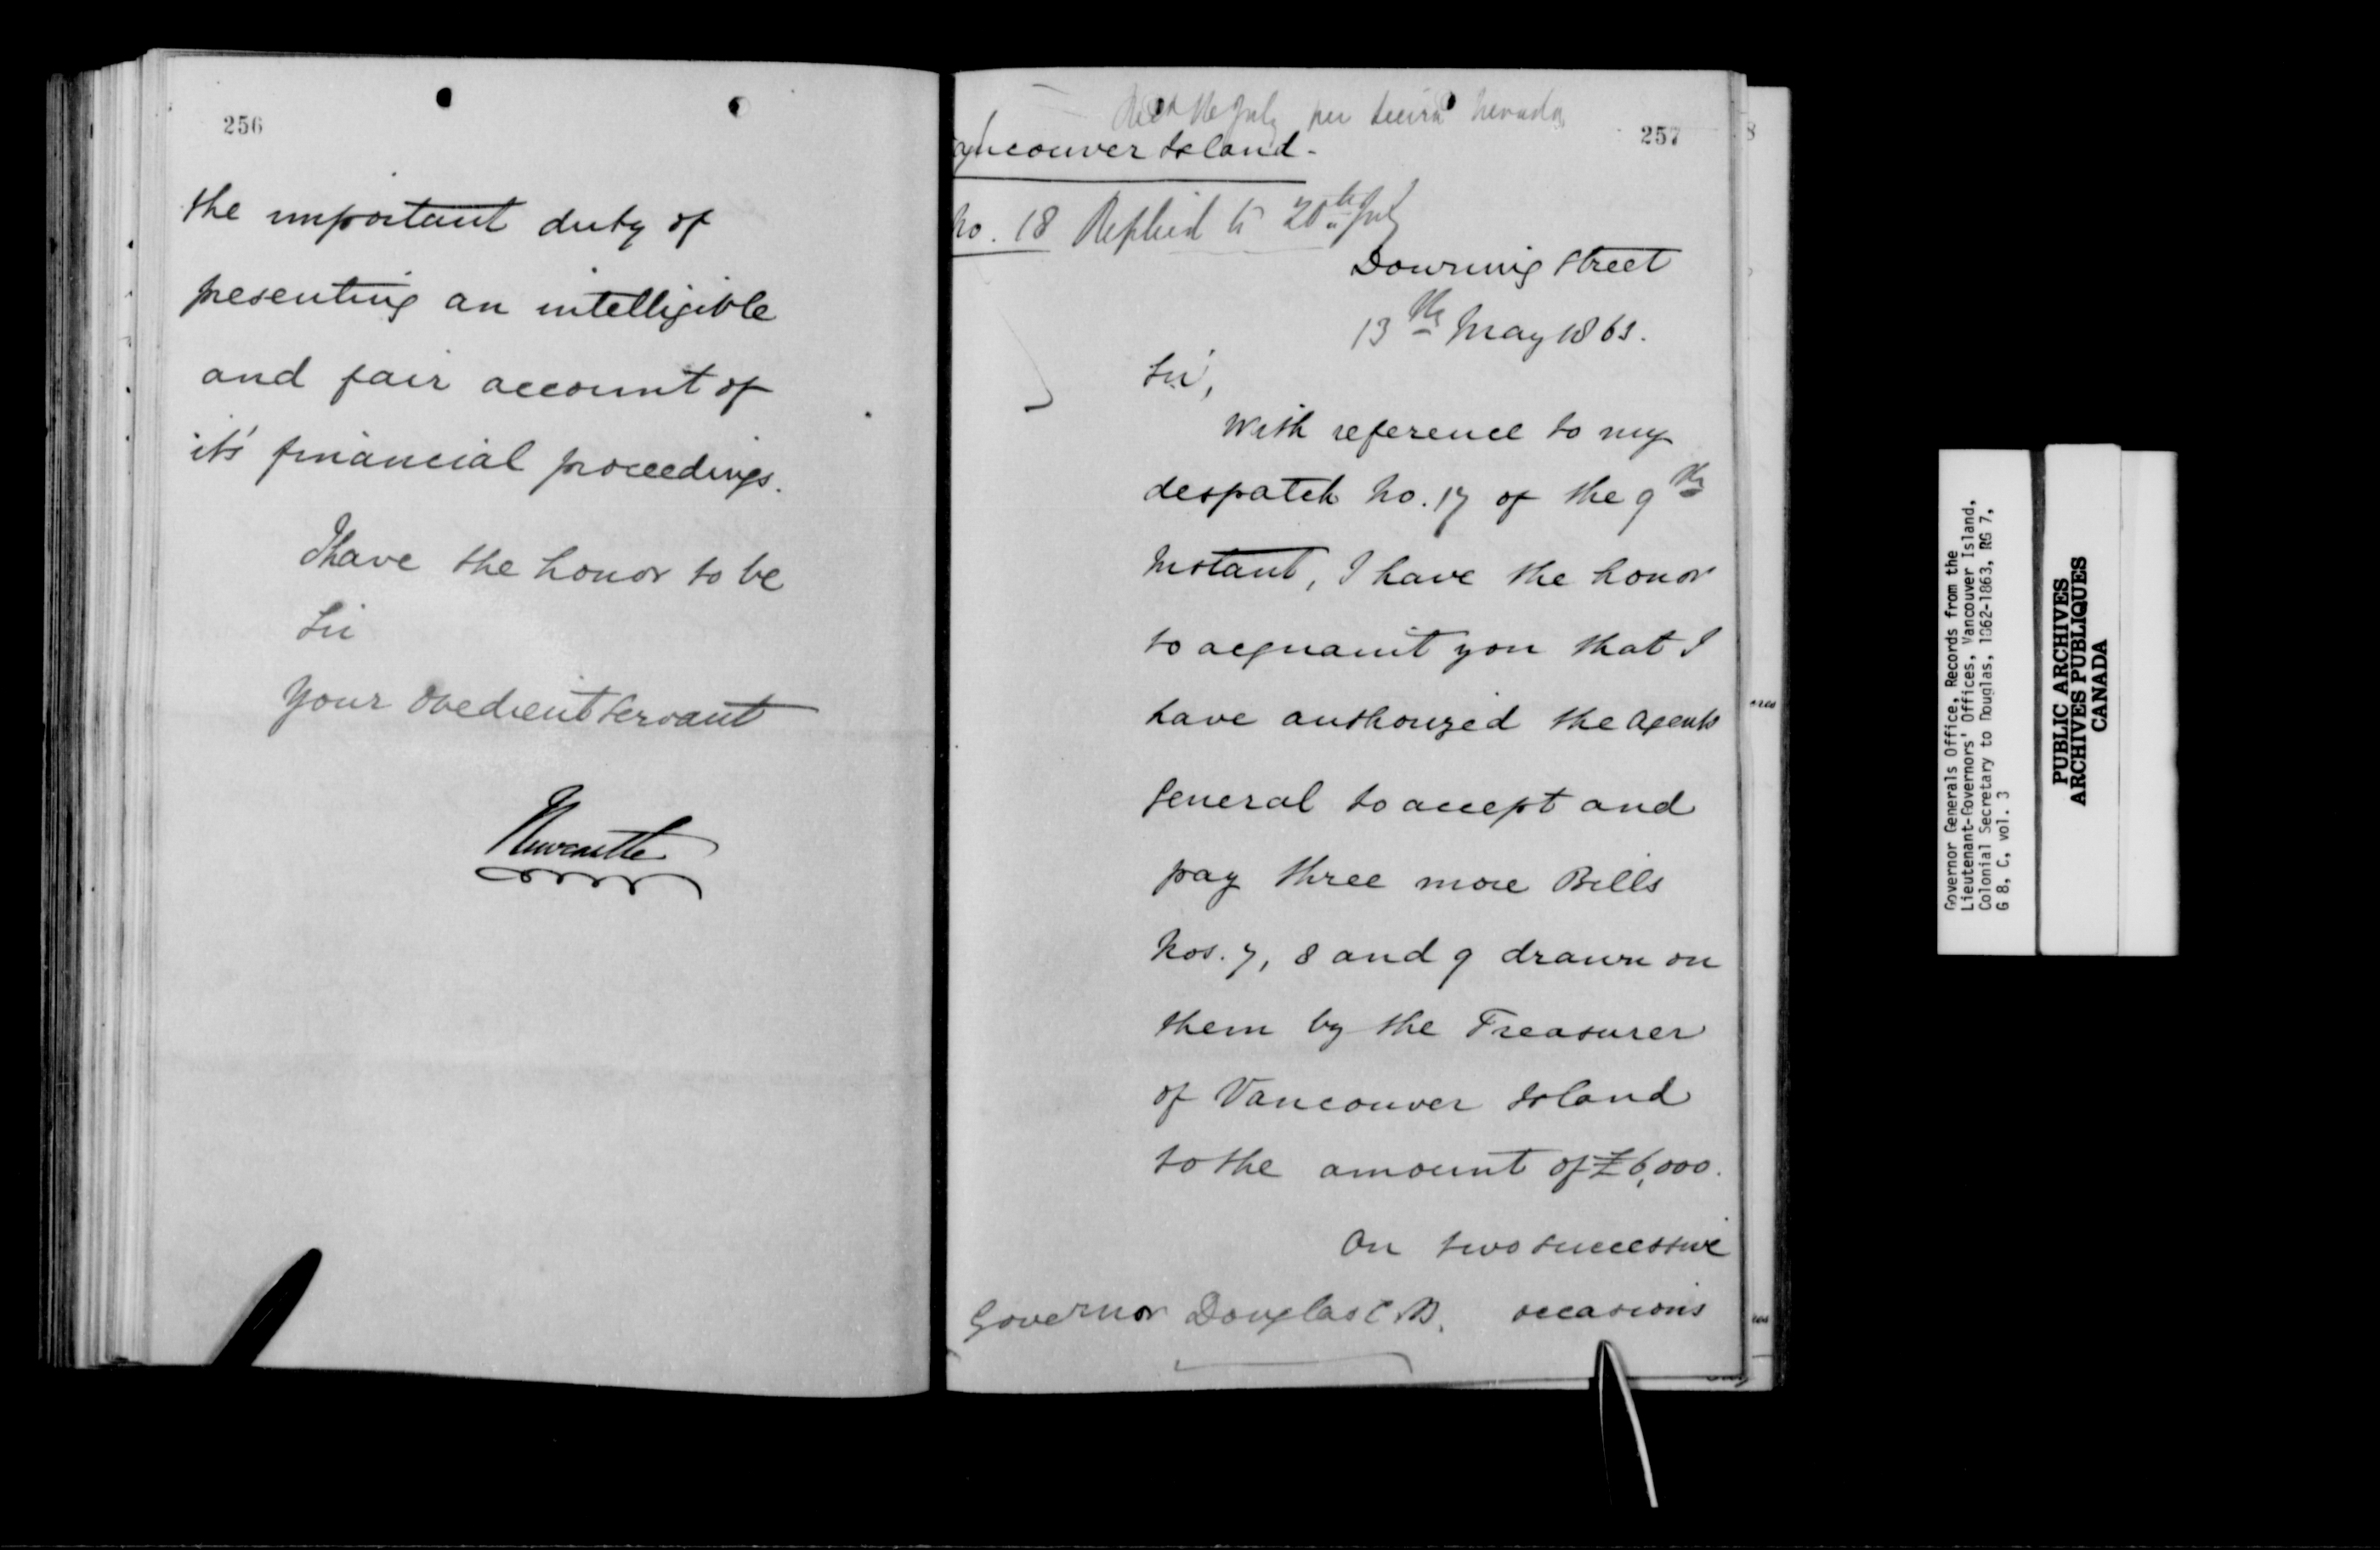 256
the important duty of
presenting an intelligible
and fair account of
it's financial proceedings.
I have the honor to be
Sir
Your obedient servant
Newcastle
257
Recd July per Sierra Nevada
ancouver Island.
No. 18 Replied to 20th July
Downing Street
13th May 1863.
Sir,
With reference to my
despatch No. 17 of the 9th
Instant, I have the honor
to acquaint you that I
have authorized the Agents
General to accept and
pay three more Bills
Nos. 7, 8 and 9 drawn on
them by the Treasurer
of Vancouver Island
to the amount of £6,000.
On two successive
occasions
Governor Douglas C.B.
Governor Generals Office, Records from the
Lieutenant-Governors' Offices, Vancouver Island,
Colonial Secretary to Douglas, 1862-1863, RG 7,
G 8, C, vol. 3
PUBLIC ARCHIVES
ARCHIVES PUBLIQUES
CANADA